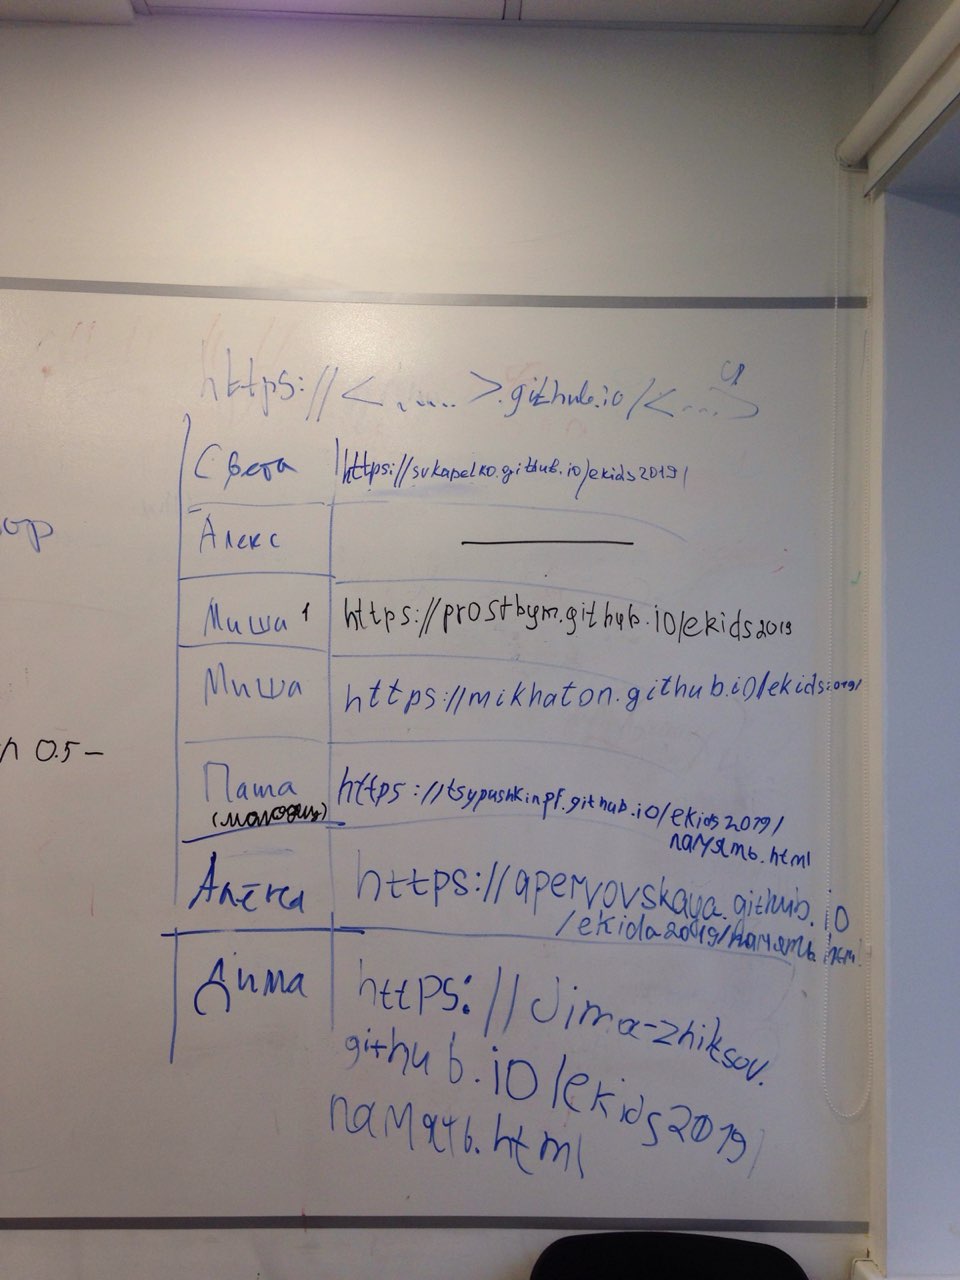 https://<.....>.github.io/<...>
Света https://svkapelko.github.io/ekids2019/
Алекс
Миша 1 https://prostbym.github.io/ekids2019
Миша https://mikhaton.github.io/ekids2019/
Паша https://tsypushkinpf.github.io/ekids2019/
(молодец) память.html
Алёна https://apervovskaya.github.io
/ekida2019/память.html
Дима https://Jima-zhiksov.
github.io/ekids2019/
память.html
ор
0.5-